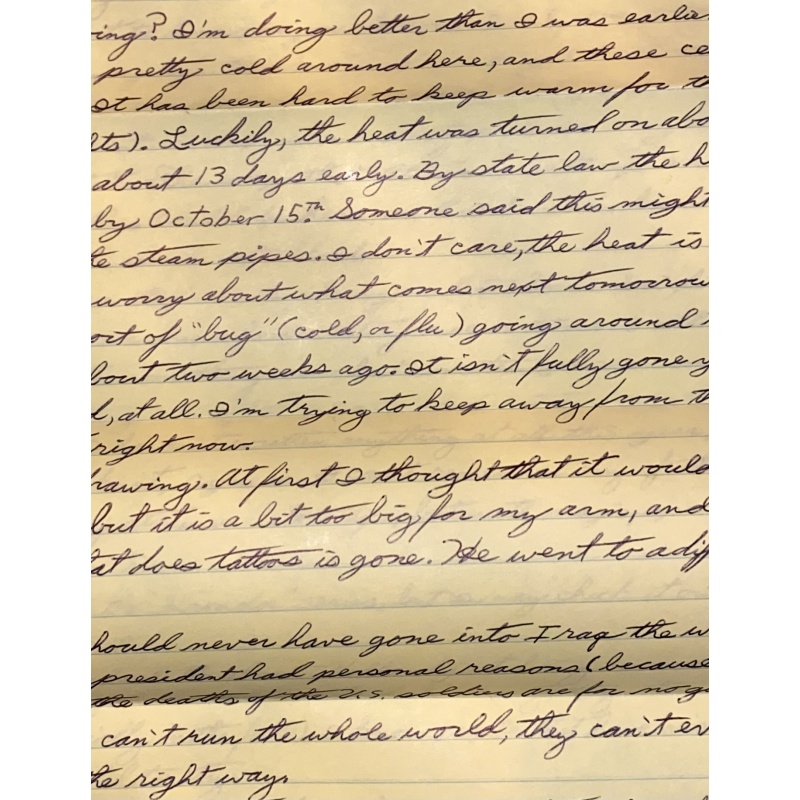 ing? I'm doing better than I was earlier
pretty cold around here, and these ce
It has been hard to keep warm for th
lts). Luckily, the heat was turned on abo
about 13 days early. By state law the h
by October 15th. Someone said this might
e steam pipes. I don't care, the heat is
worry about what comes next tomorrow
ort of "bug" (cold, or flu) going around
bout two weeks ago. It isn't fully gone y
d, at all. I'm trying to keep away from th
right now.
rawing. At first I thought that it would
but it is a bit too big for my arm, and
at does tattoos is gone. He went to a diff
hould never have gone into Iraq the w
president had personal reasons (because
the deaths of the U.S. soldiers are for no go
can't run the whole world, they can't ev
he right way.